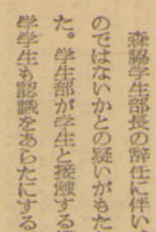 森脇学生部長の辞任に伴い
のではないかとの疑いがもた
た。学生部が学生と接触する
学学生も認識をあらたにする